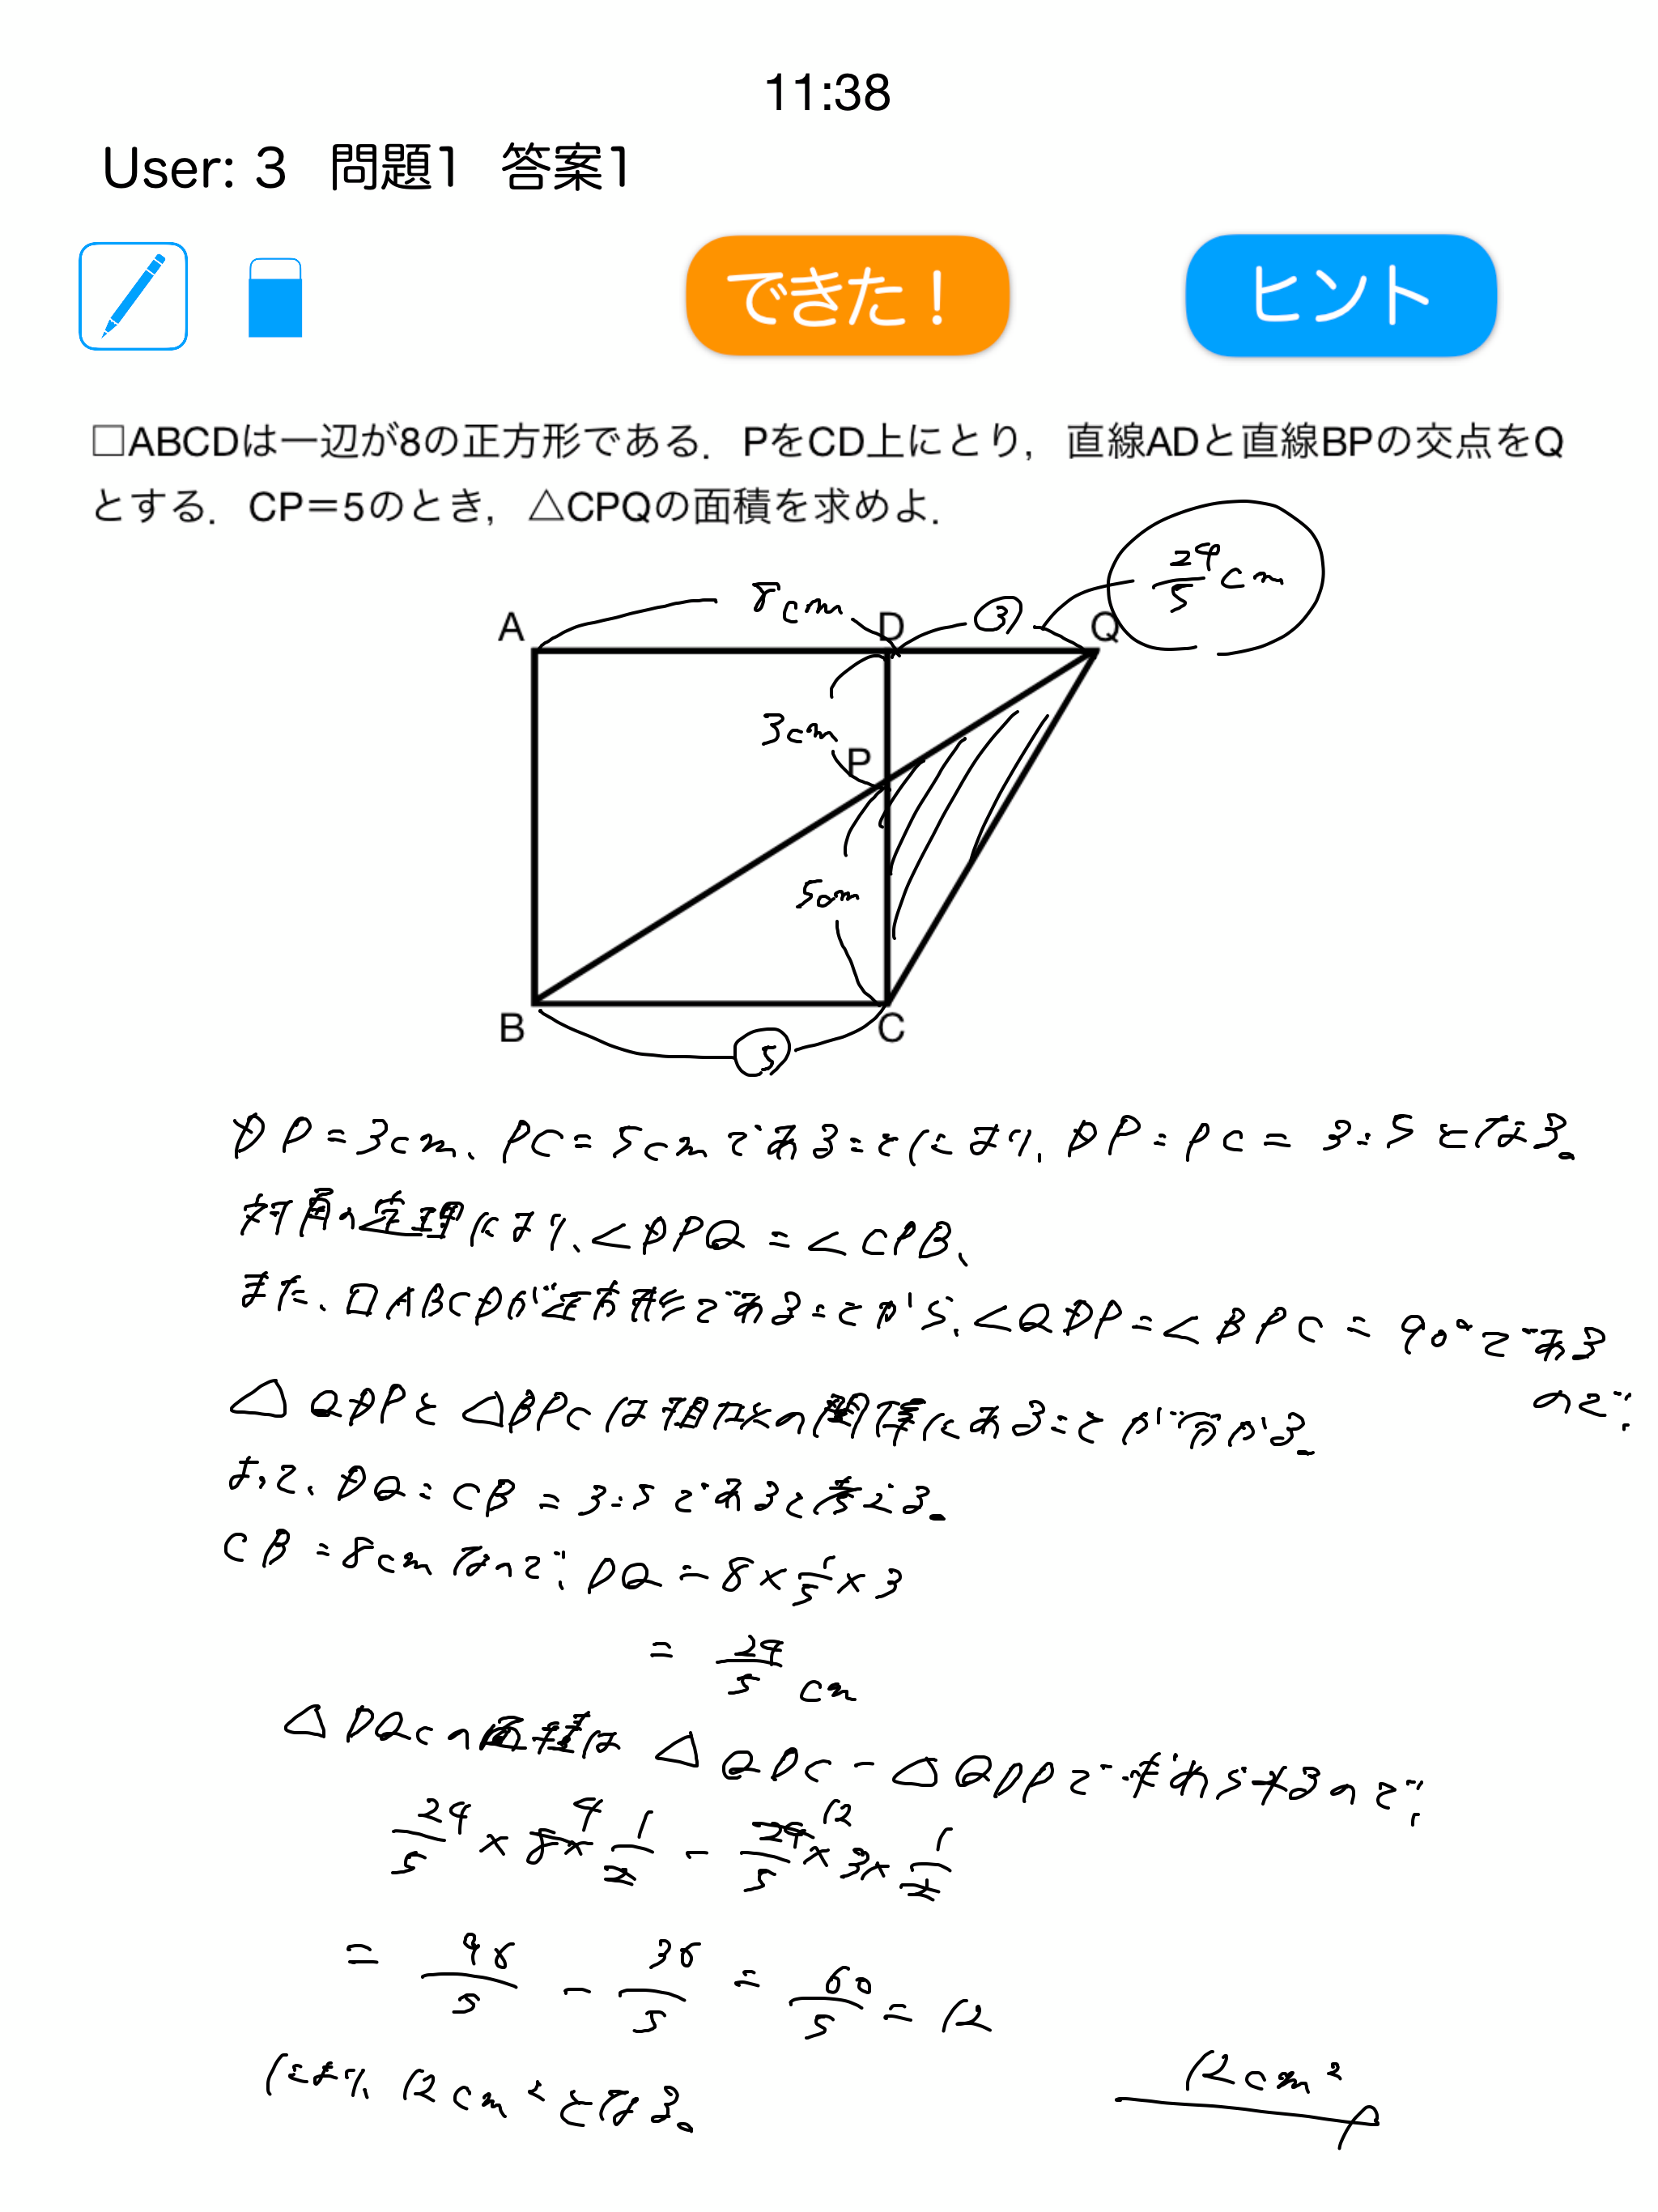 11:38
User: 3 問題1 答案1
できた！ ヒント
□ABCDは一辺が8の正方形である．PをCD上にとり，直線ADと直線BPの交点をQ
とする．CP＝5のとき，△CPQの面積を求めよ．
24/5 cm
8cm ③
A D Q
3cm
P
5cm
B C
⑤
DP=3cm、PC=5cmであることにより、DP:PC=3:5となる。
対角の定理により、∠DPQ=∠CPB、
また、□ABCDが正方形であることから、∠QDP=∠BPC=90°である
ので、
△QDPと△BPCは相似の関係にあることが分かる。
よって、DQ:CB=3:5であると考える。
CB=8cmなので、DQ=8×1/5×3
=24/5 cm
△DQCの面積は △QDC-△QDPで求められるので、
24/5×8×1/2-24/5×3×1/2
4 12
=96/5-36/5=60/5=12
により、12cm²となる。
12cm²